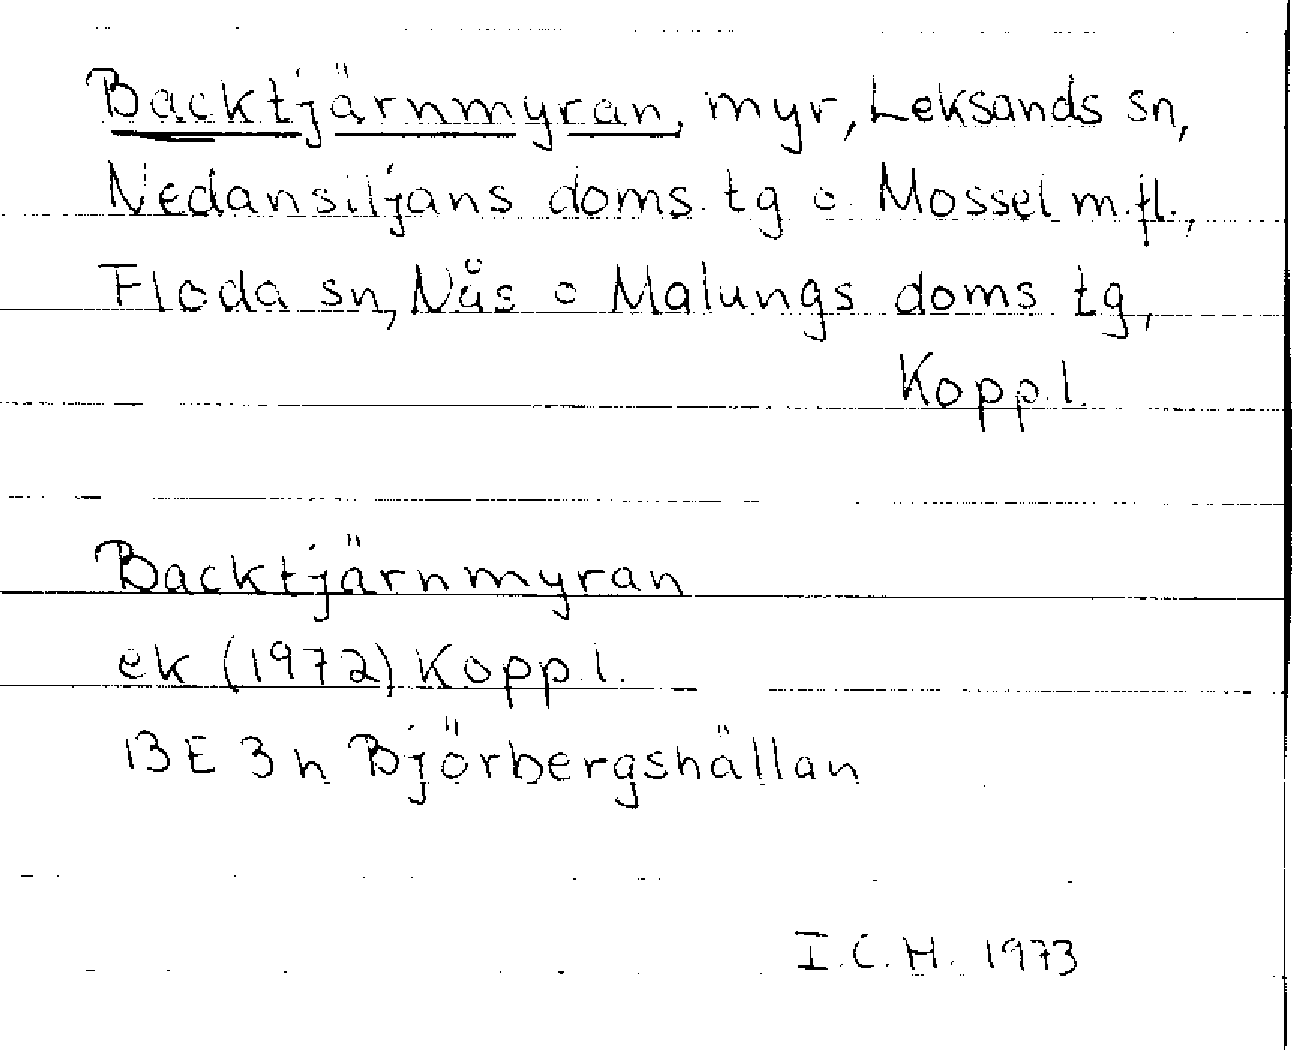 Backtjärnmyran, myr, Leksands sn,
Nedansiljans doms. tg o. Mossel m.fl.,
Floda sn, Nås o Malungs doms tg,
Kopp.l.
Backtjärnmyran
ek (1972) Kopp.l.
13E 3h Björbergshällan
I.C.H. 1973